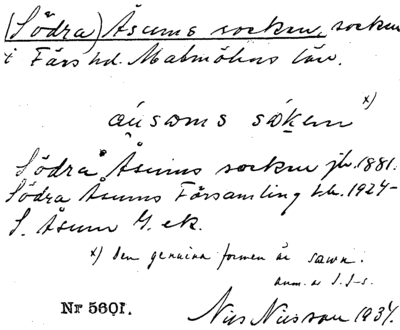 (Södra) Åsums socken, socken
i Färs hd. Malmöhus län.
åusoms såken x)
Södra Åsums socken jb. 1881.
Södra Åsums Församling kb. 1924-
S. Åsum G. ek.
x) den genuina formen är sawn.
anm. av I. I-s.
Nr 5601.
Nils Nilsson 1934.